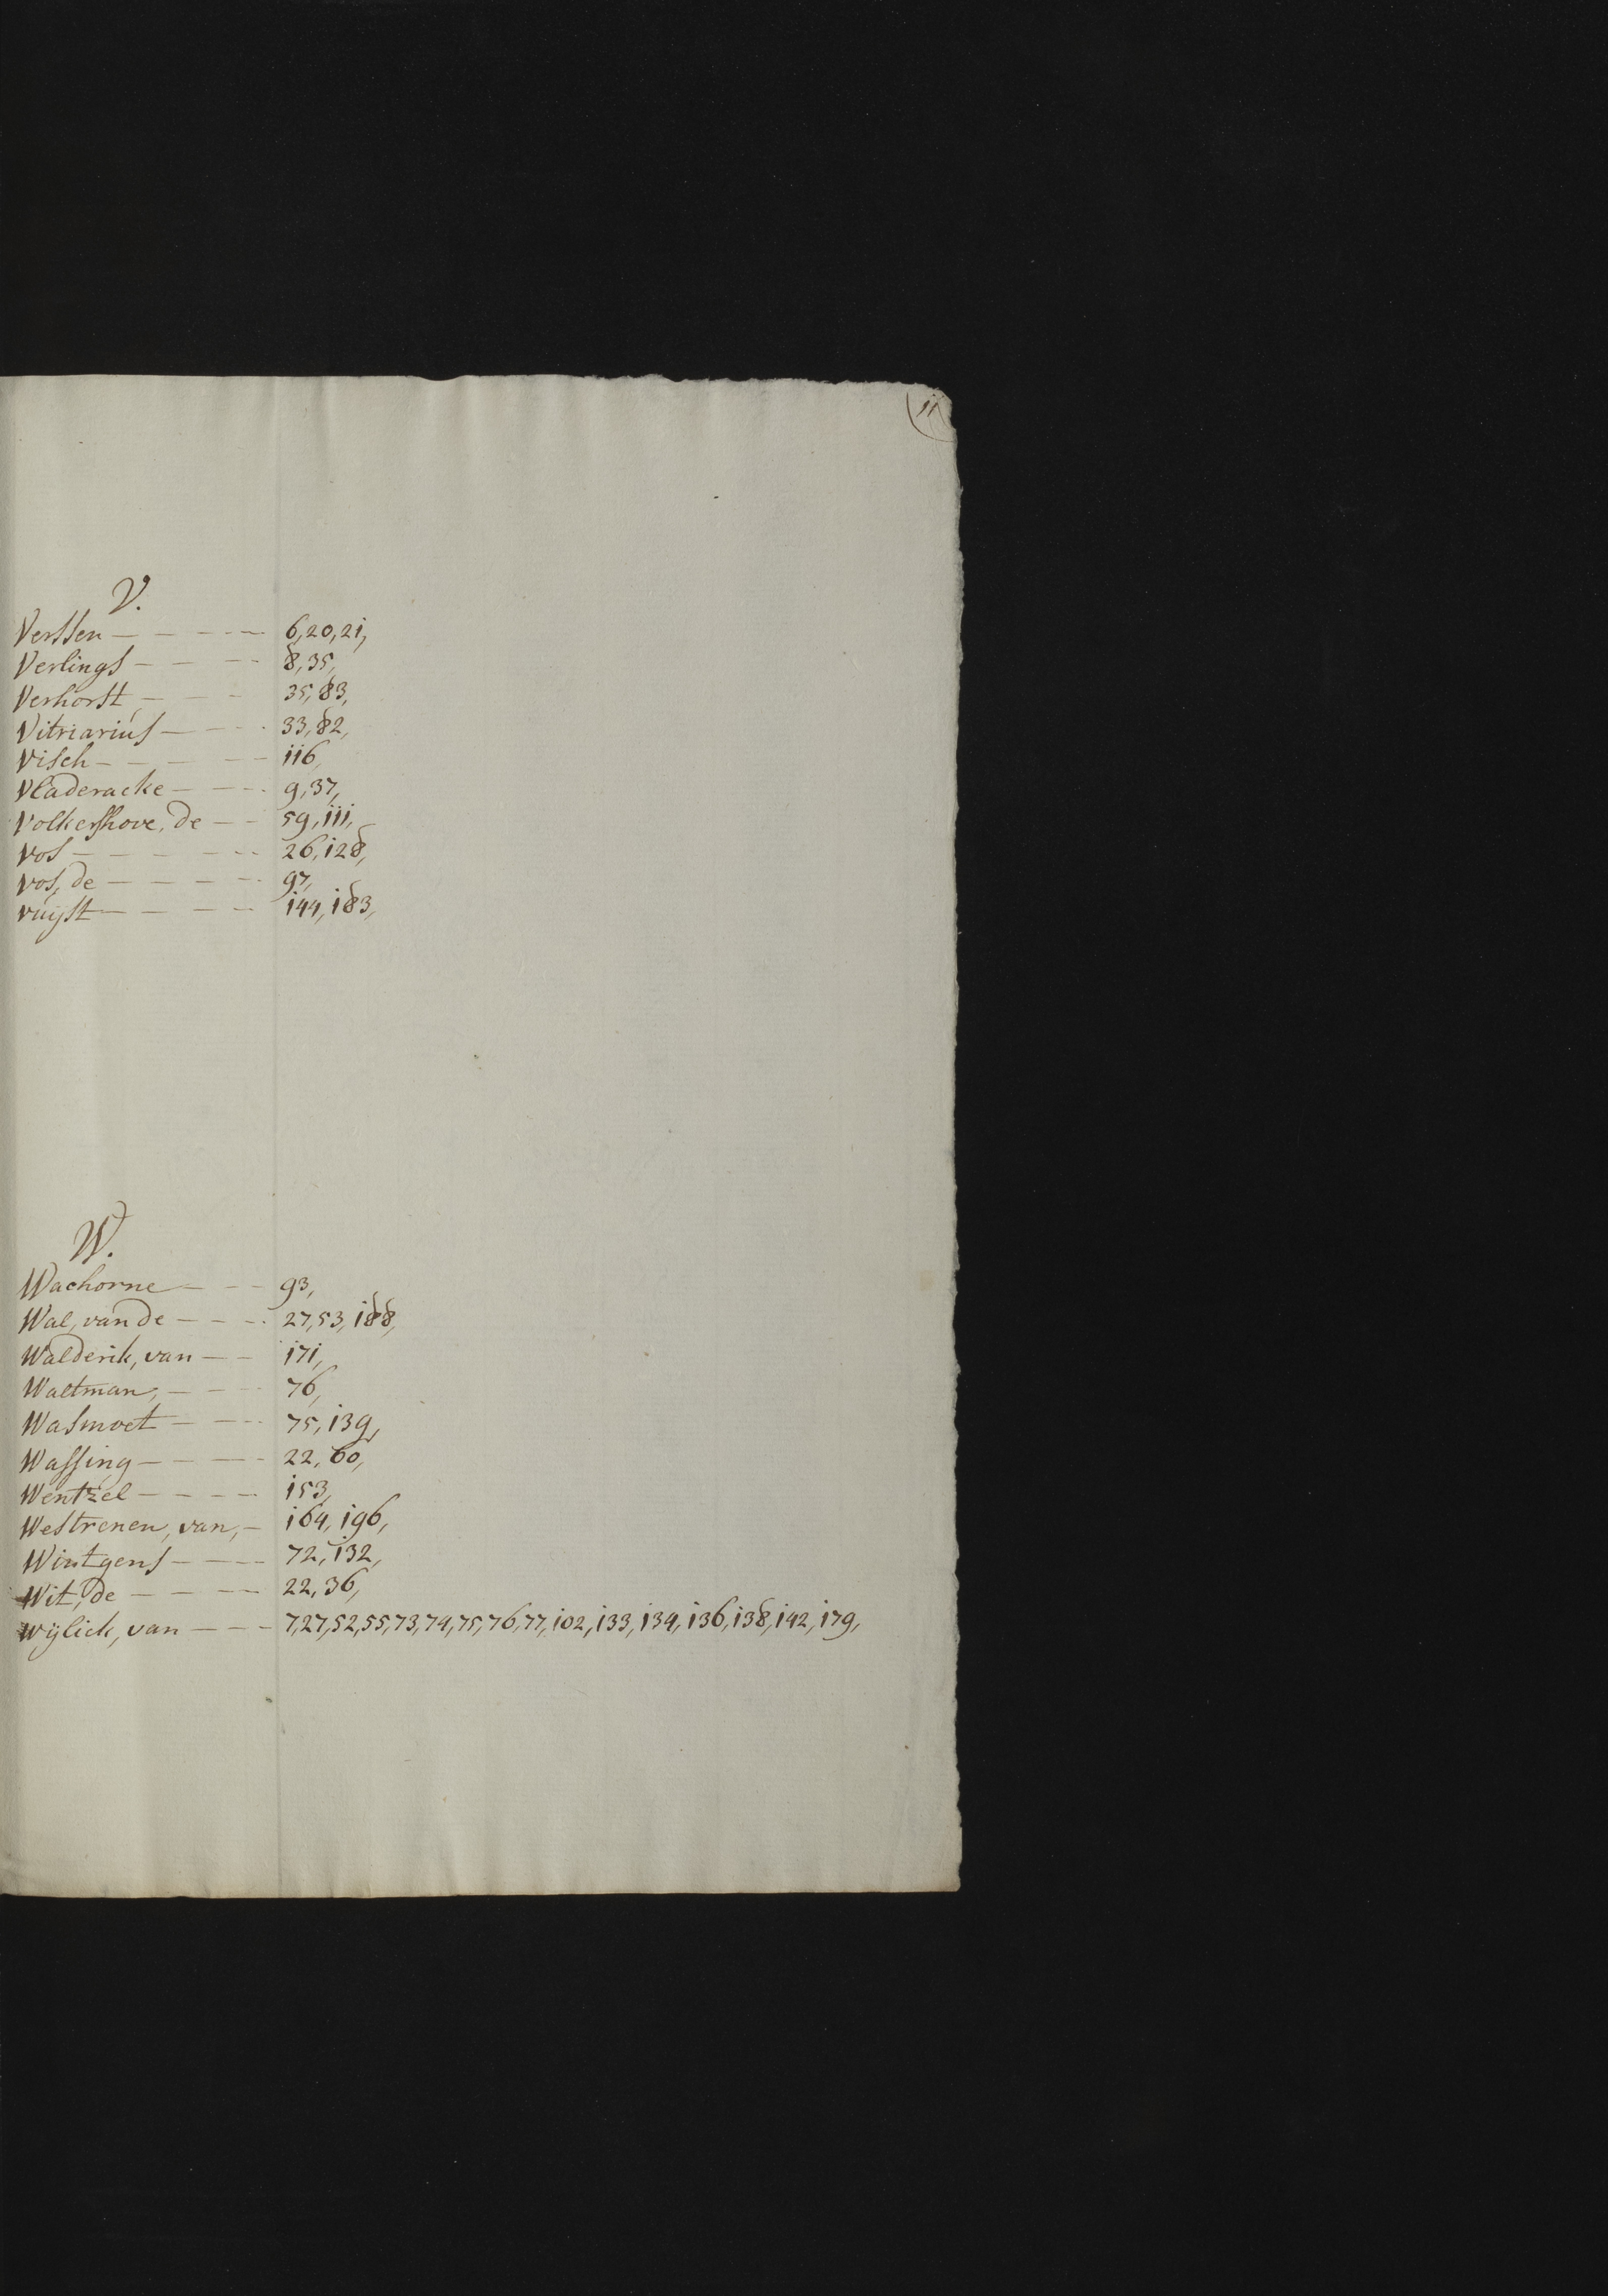 11
V.
Verssen — — — — — 6,20,21,
Verlings — — — — 8,35,
Verhorst, — — — 35,83,
Vitriarius — — — 33,82,
Visch — — — — — 116,
Vladeracke — — — 9,37,
Volkershove, de — — 59,111,
Vos — — — — — 26,128,
Vos, de — — — — — 97,
Vuijst — — — — — 144,183,
W.
Wachorne — — — 93,
Wal, van de — — — 27,53,188,
Walderik, van — — 171,
Waltman, — — — 76,
Wasmoet — — — 75,139,
Wassing — — — — 22,60,
Wentzel — — — — 153,
Westrenen, van, — 164,196,
Wintgens — — — 72,132,
Wit, de — — — — 22,36,
Wylick, van — — — 7,27,52,55,73,74,75,76,77,102,133,134,136,138,142,179,